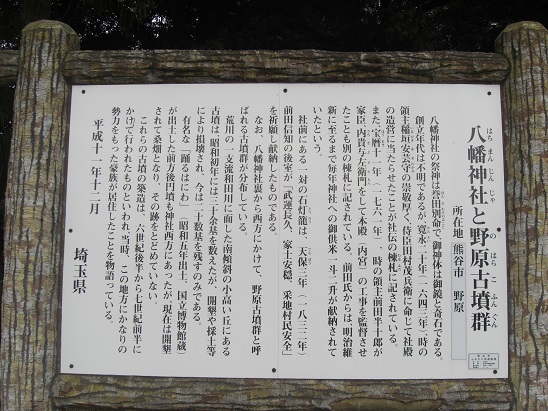 はちまんじんじゃ　のはらこふんぐん
八幡神社と野原古墳群
所在地 熊谷市 野原
八幡神社の祭神は誉田別命で、御神体は御鏡と奇石である。
創立年代は不明であるが、寛永二十年(一六四三年)時の
領主稲垣安芸守の崇敬厚く、侍臣田村茂兵衛に命じて社殿
の造営に当たらせたことが社伝の棟札に記されている。
また、宝暦十一年(一七六一年)、時の領主前田半十郎が
家臣、内貴与左衛門をして本殿(内宮)の工事を監督させ
たことも別の棟札に記されている。前田氏からは、明治維
新に至るまで毎年神社への御供米一斗二升が献納されて
いたという。
社前にある一対の石灯籠は、天保三年(一八三二年)
前田信知の後室が「武運長久、家士安穏、采地村民安全」
を祈願し献納したものである。
なお、八幡神社裏から西方にかけて、野原古墳群と呼
ばれる古墳群が分布している。
荒川の一支流和田川に面した南傾斜の小高い丘にある
古墳は、昭和初年には三十余基を数えたが、開墾や採土等
により損壊され、今は二十数基を残すのみである。
有名な「踊るはにわ」(昭和五年出土、国立博物館蔵)
が出土した前方後円墳も神社西方にあったが、現在は開墾
されて桑畑となり、その跡をとどめていない。
これらの古墳の築造は、六世紀後半から七世紀前半に
かけて行われたものといわれ、当時、この地方にかなりの
勢力をもった豪族が居住したことを物語っている。
平成十一年十二月
埼玉県